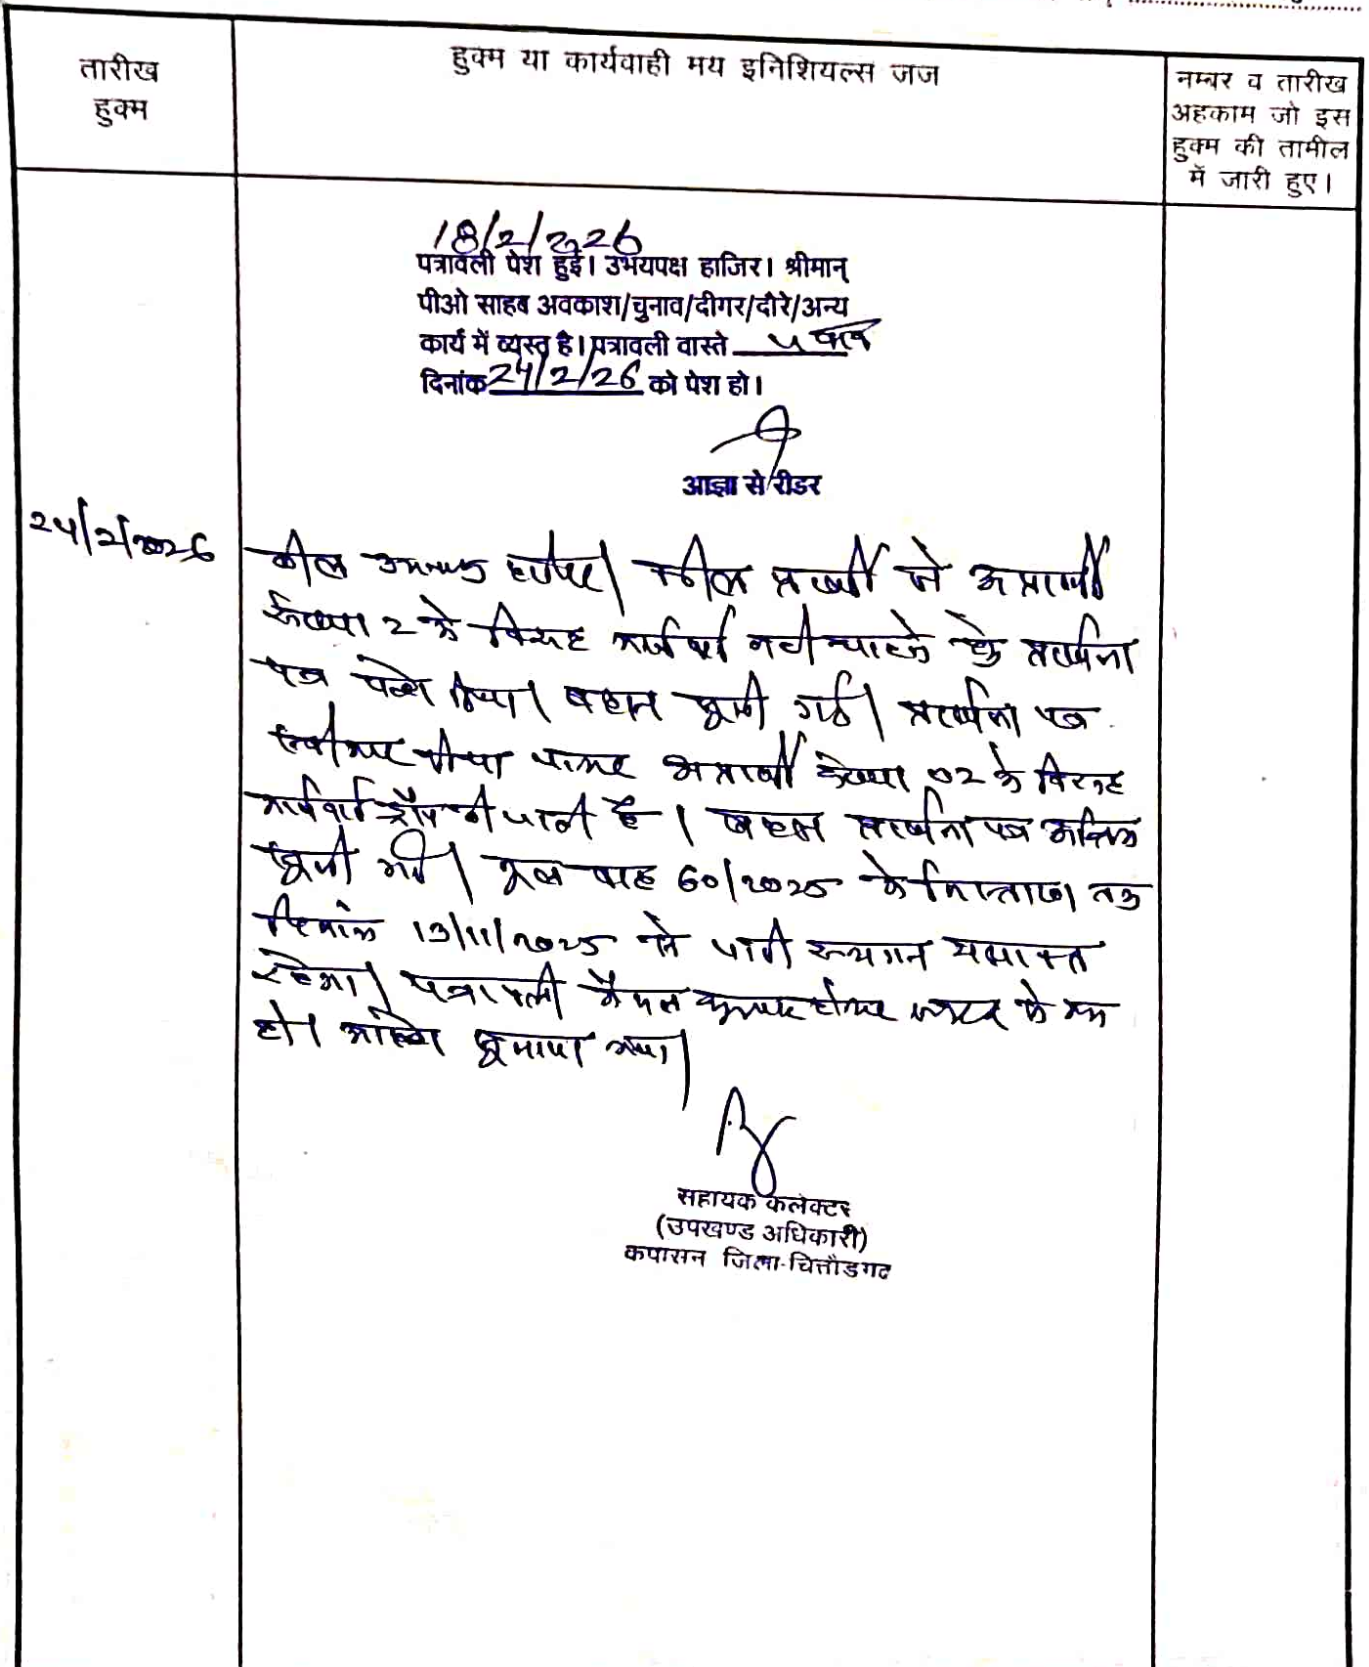 तारीख
हुक्म
हुक्म या कार्यवाही मय इनिशियल्स जज
नम्बर व तारीख
अहकाम जो इस
हुक्म की तामील
में जारी हुए।
18/2/2026
पत्रावली पेश हुई। उभयपक्ष हाजिर। श्रीमान्
पीओ साहब अवकाश/चुनाव/दीगर/दौरे/अन्य
कार्य में व्यस्त है। पत्रावली वास्ते
दिनांक 24/2/26 को पेश हो।
आज्ञा से रीडर
24/2/2026
वकील उभयपक्ष हाजिर। वकील प्रार्थी ने अप्रार्थी
संख्या 2 के विरूद्ध कार्यवाही नहीं चाहने के प्रार्थना
पत्र पेश किया। बहस सुनी गई। प्रार्थना पत्र
स्वीकार किया जाकर अप्रार्थी संख्या 02 के विरूद्ध
कार्यवाही ड्रॉप की जाती है। बहस प्रार्थना पत्र अन्तिम
सुनी गयी। मूल वाद 60/2025 के निस्तारण तक
दिनांक 13/11/2025 को जारी स्थगन यथावत
रहेगा। पत्रावली फैसल शुमार होकर नम्बर से कम
हो। आदेश सुनाया गया।
सहायक कलेक्टर
(उपखण्ड अधिकारी)
कपासन जिला-चित्तौडगढ